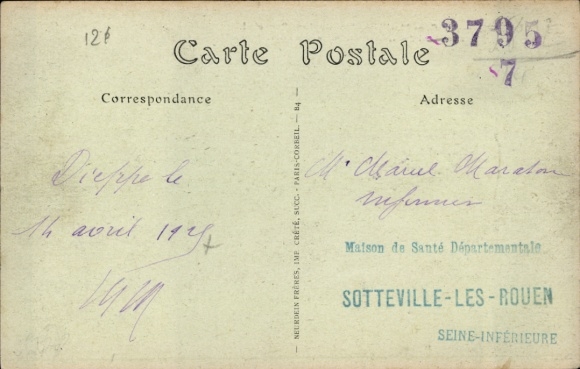 12f
3795
7
Carte Postale
Correspondance
Adresse
Dieppe le
14 avril 1925
Mr Marcel
infirmier
Maison de Santé Départementale
SOTTEVILLE-LES-ROUEN
SEINE-INFÉRIEURE
NEURDEIN FRÈRES, IMP. CRÉTÉ, SUCC. - PARIS-CORBEIL. — 84 —